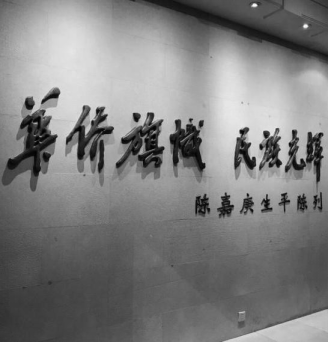 華侨旗帜 民族光輝
陈嘉庚生平陈列